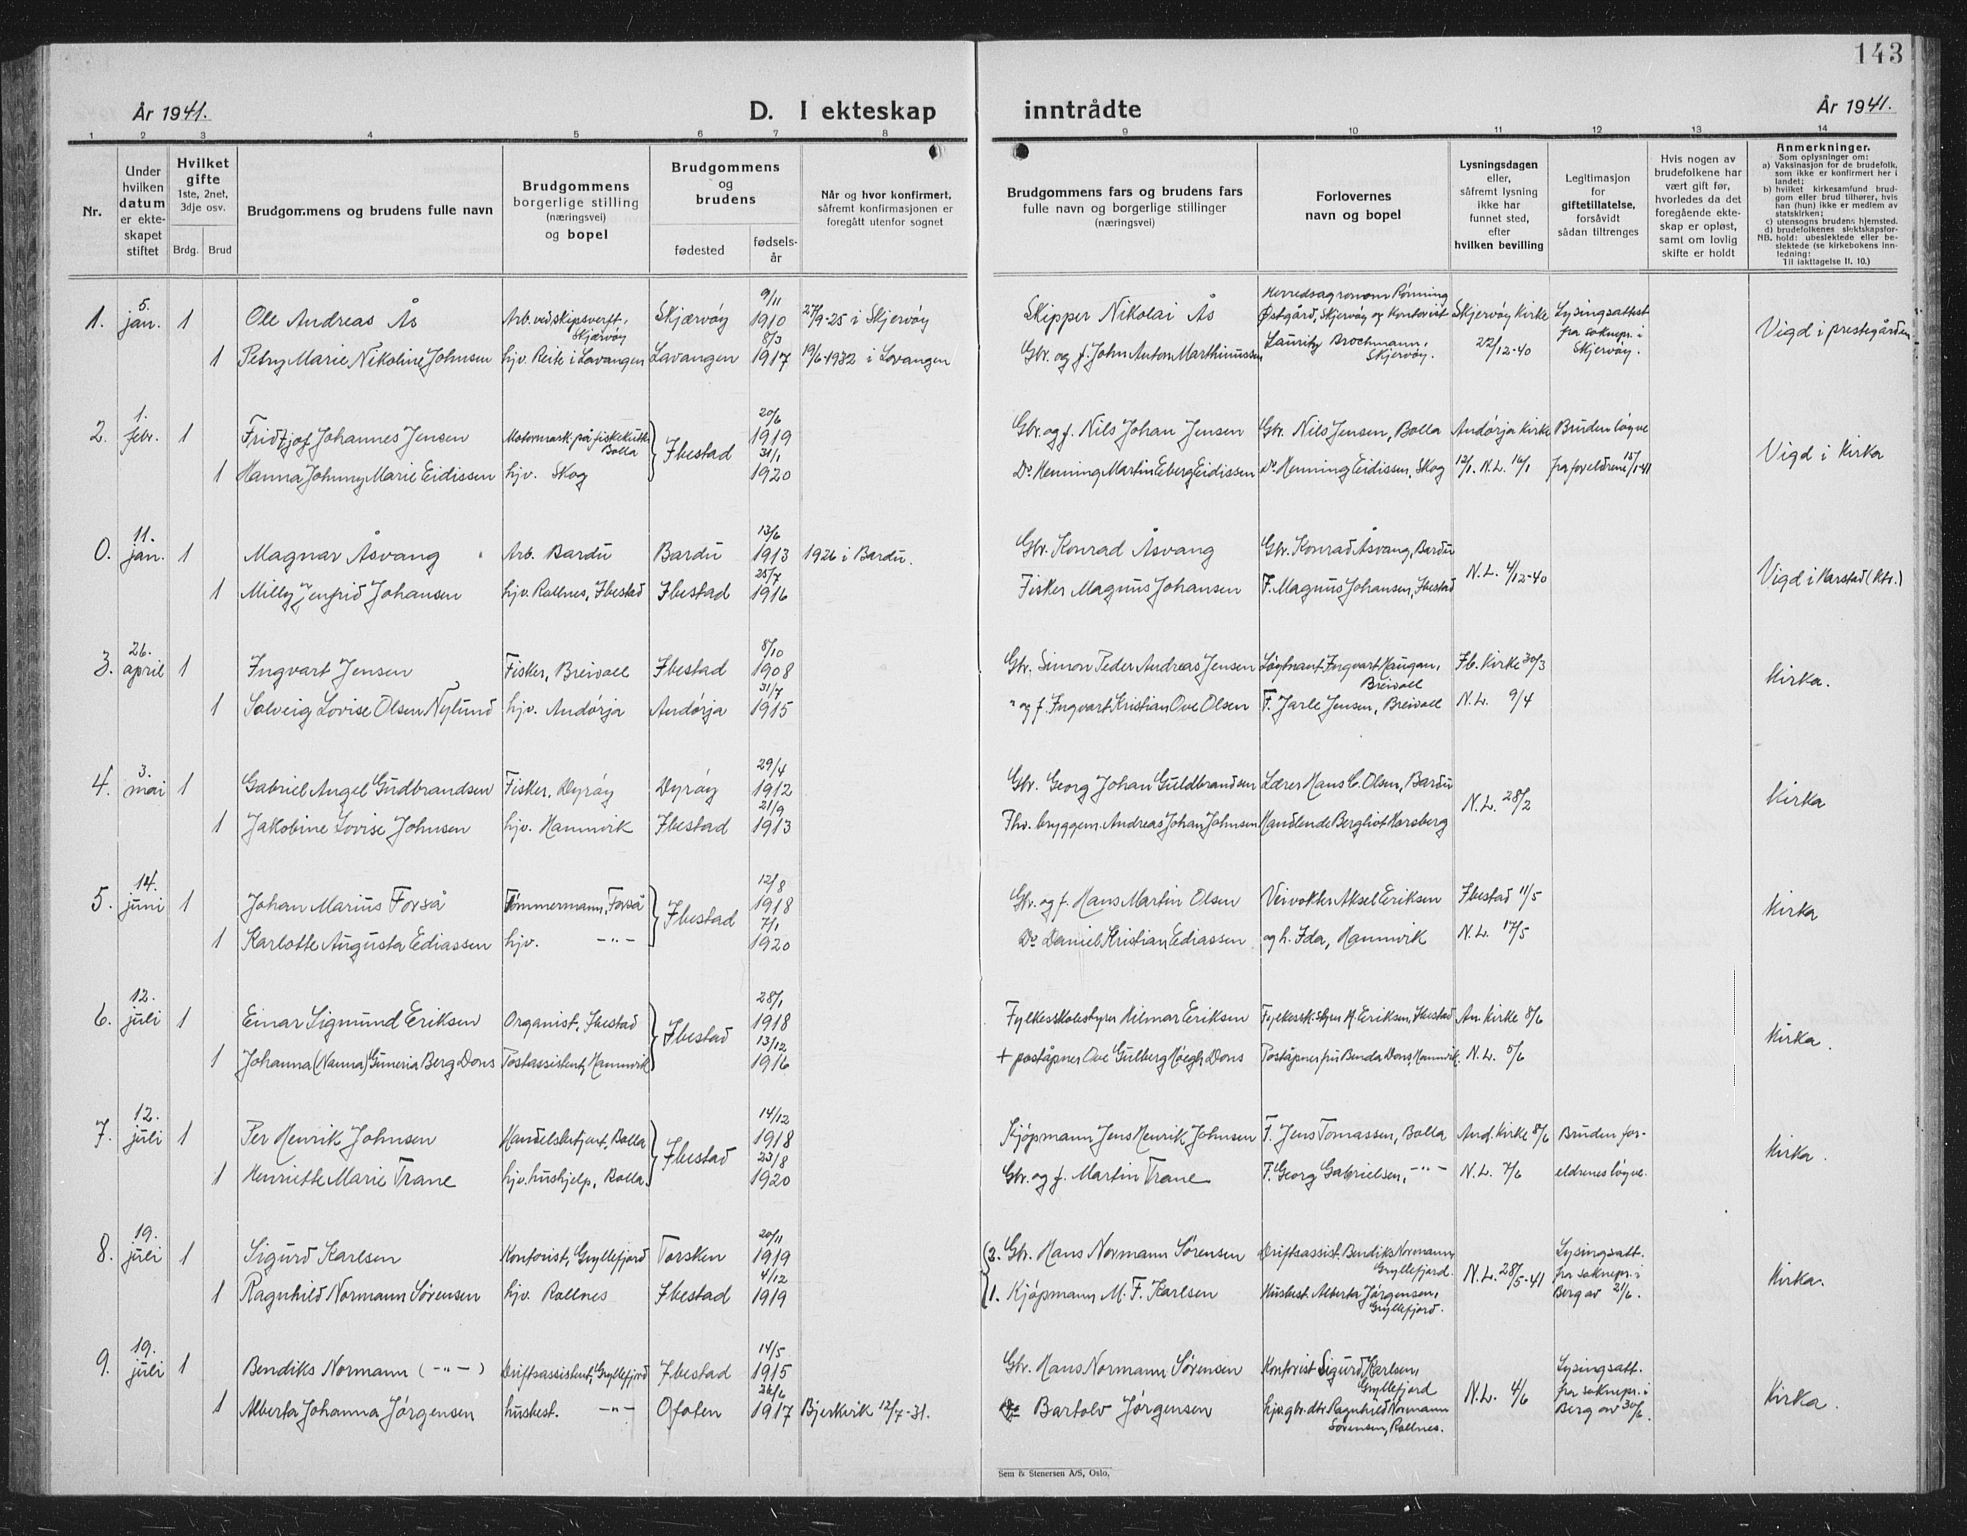 143
År 1941.
D. I ekteskap inntrådte
År 1941.
1 2 3 4 5 6 7 8 9 10 11 12 13 14
Nr.
Under hvilken datum er ekteskapet stiftet
Hvilket gifte 1ste, 2net, 3dje osv.
Brdg. Brud
Brudgommens og brudens fulle navn
Brudgommens borgerlige stilling (næringsvei) og bopel
Brudgommens og brudens
fødested
fødselsår
Når og hvor konfirmert, såfremt konfirmasjonen er foregått utenfor sognet
Brudgommens fars og brudens fars fulle navn og borgerlige stillinger (næringsvei)
Forlovernes navn og bopel
Lysningsdagen eller, såfremt lysning ikke har funnet sted, efter hvilken bevilling
Legitimasjon for giftetillatelse, forsåvidt sådan tiltrenges
Hvis nogen av brudefolkene har vært gift før, hvorledes da det foregående ekteskap er opløst, samt om lovlig skifte er holdt
Anmerkninger.
Som oplysninger om:
a) Vaksinasjon for de brudefolk, som ikke er konfirmert her i landet;
b) hvilket kirkesamfund brudgom eller brud tilhører, hvis han (hun) ikke er medlem av statskirken;
c) utensogns brudens hjemsted.
d) brudefolkenes slektskapsforhold: ubeslektede eller beslektede (se kirkebokens innledning:
NB.
Til iakttagelse II. 10.)
1. 5. jan. 1 Ole Andreas Ås Arb. ved skipsverft, Skjærvøy Skjærvøy 9/11 1910 27/9-25 i Skjervøy Skipper Nikolai Ås Herredsagronom Rönning Østgård, Skjervøy og Kontorist Skjervøy Kirke Lysingsattest fra soknepr. i Skjervøy. Vigd i prestegården
1 Petry Marie Nikoline Johnsen hjv. Reite i Lavangen Lavangen 8/3 1917 19/6-1932 i Lavangen Gbr. og f. John Anton Marthinussen Lauritz Brochmann, Skjervøy. 22/12-40
2. 1. febr. 1 Fridtjof Johannes Jensen Motormask. på fiskekutter Bolla Ibestad 20/6 1919 Gbr. og f. Nils Johan Jensen Gbr. Nils Jensen, Bolla Andørja Kirke Bruden løyve Vigd i Kirka
1 Hanna Johnny Marie Eidissen hjv. Skog 31/1 1920 Do Henning Martin Eberg Eidissen do Henning Eidissen, Skog 12/1. N.L. 16/1 fra foreldrene 15/1-41
0. 11. jan. 1 Magnar Åsvang Arb. Bardu Bardu 13/6 1913 1926 i Bardu. Gbr. Konrad Åsvang Gbr. Konrad Åsvang, Bardu N.L. 4/12-40 Vigd i Harstad (Ktr.)
1 Milly Ingrid Johansen hjv. Rollnes, Ibestad Ibestad 25/7 1916 Fisker Magnus Johansen F. Magnus Johansen, Ibestad
3. 26. april 1 Ingvart Jensen Fisker, Breivoll Ibestad 8/10 1908 Gbr. Simon Peder Andreas Jensen Løytnant Ingvart Haugan, Breivoll Ib. Kirke 30/3 Kirka.
1 Solveig Lovise Olsen Nylund hjv. Andørja Andørja 31/7 1915 " og f. Ingvart Kristian Ove Olsen F. Jarle Jensen, Breivoll N.L. 9/4
4. 3. mai 1 Gabriel Angel Gudbrandsen Fisker, Dyrøy Dyrøy 29/4 1912 Gbr. Georg Johan Guldbrandsen Lærer Hans C. Olsen, Bardu N.L. 28/2 Kirka
1 Jakobine Lovise Johnsen hjv. Hamnvik Ibestad 21/9 1913 Fhv. bryggem. Andreas Johan Johnsen Handlende Bergliot Harsberg
5. 14. juni 1 Johan Marius Forså Tømmermann, Forså Ibestad 12/8 1918 Gbr. og f. Hans Martin Olsen Veivokter Aksel Eriksen Ibestad 11/5 Kirka
1 Karlotte Augusta Ediassen hjv. -"- 7/1 1920 Do Daniel Kristian Ediassen og h. Ida, Hamnvik N.L. 17/5
6. 12. juli 1 Einar Sigmund Eriksen Organist, Ibestad Ibestad 28/1 1918 Fylkesskolestyrer Hilmar Eriksen Fylkessk.styrer H. Eriksen, Ibestad An. Kirke 8/6 Kirka.
1 Johanna (Nanna) Guneria Berg Dons Postassistent, Hamnvik 13/12 1916 + poståpner Ove Gulberg Høegh Dons Poståpner fru Benda Dons, Hamnvik. N.L. 5/6
7. 12. juli 1 Per Henrik Johnsen Handelsbetjent, Bolla Ibestad 14/12 1918 Kjøpmann Jens Henrik Johnsen F. Jens Tomassen, Bolla And. Kirke 8/6 Bruden for- Kirka.
1 Henriette Marie Trane hjv. hushjelp, Bolla. 23/8 1920 Gbr. og f. Martin Trane F. Georg Gabrielsen, -"- N.L. 7/6 eldrenes løyve.
8. 19. juli 1 Sigurd Karlsen Kontorist, Gryllefjord Torsken 20/11 1919 (2. Gbr. Hans Normann Sørensen Driftsassist. Bendiks Normann, Gryllefjord. N.L. 28/5-41 Lysingsatt. fra soknepr. i Berg av 21/6. Kirka.
1 Ragnhild Normann Sørensen hjv. Rollnes Ibestad 4/12 1919 (1. Kjøpmann M. F. Karlsen Husbest. Alberta Jørgensen, Gryllefjord.
9. 19. juli 1 Bendiks Normann (-"-) Driftsassistent, Gryllefjord Ibestad 14/5 1915 Gbr. Hans Normann Sørensen Kontorist Sigurd Karlsen, Gryllefjord N.L. 4/6 Lysingsatt. fra soknepr. i Berg av 30/6. Kirka.
1 Alberta Johanna Jörgensen husbest. -"- Ofoten 26/6 1917 Bjerkvik 12/7-31. Bartolv Jörgensen hjv. gbr. dtr. Ragnhild Normann Sørensen, Rollnes.
Sem & Stenersen A/S, Oslo.